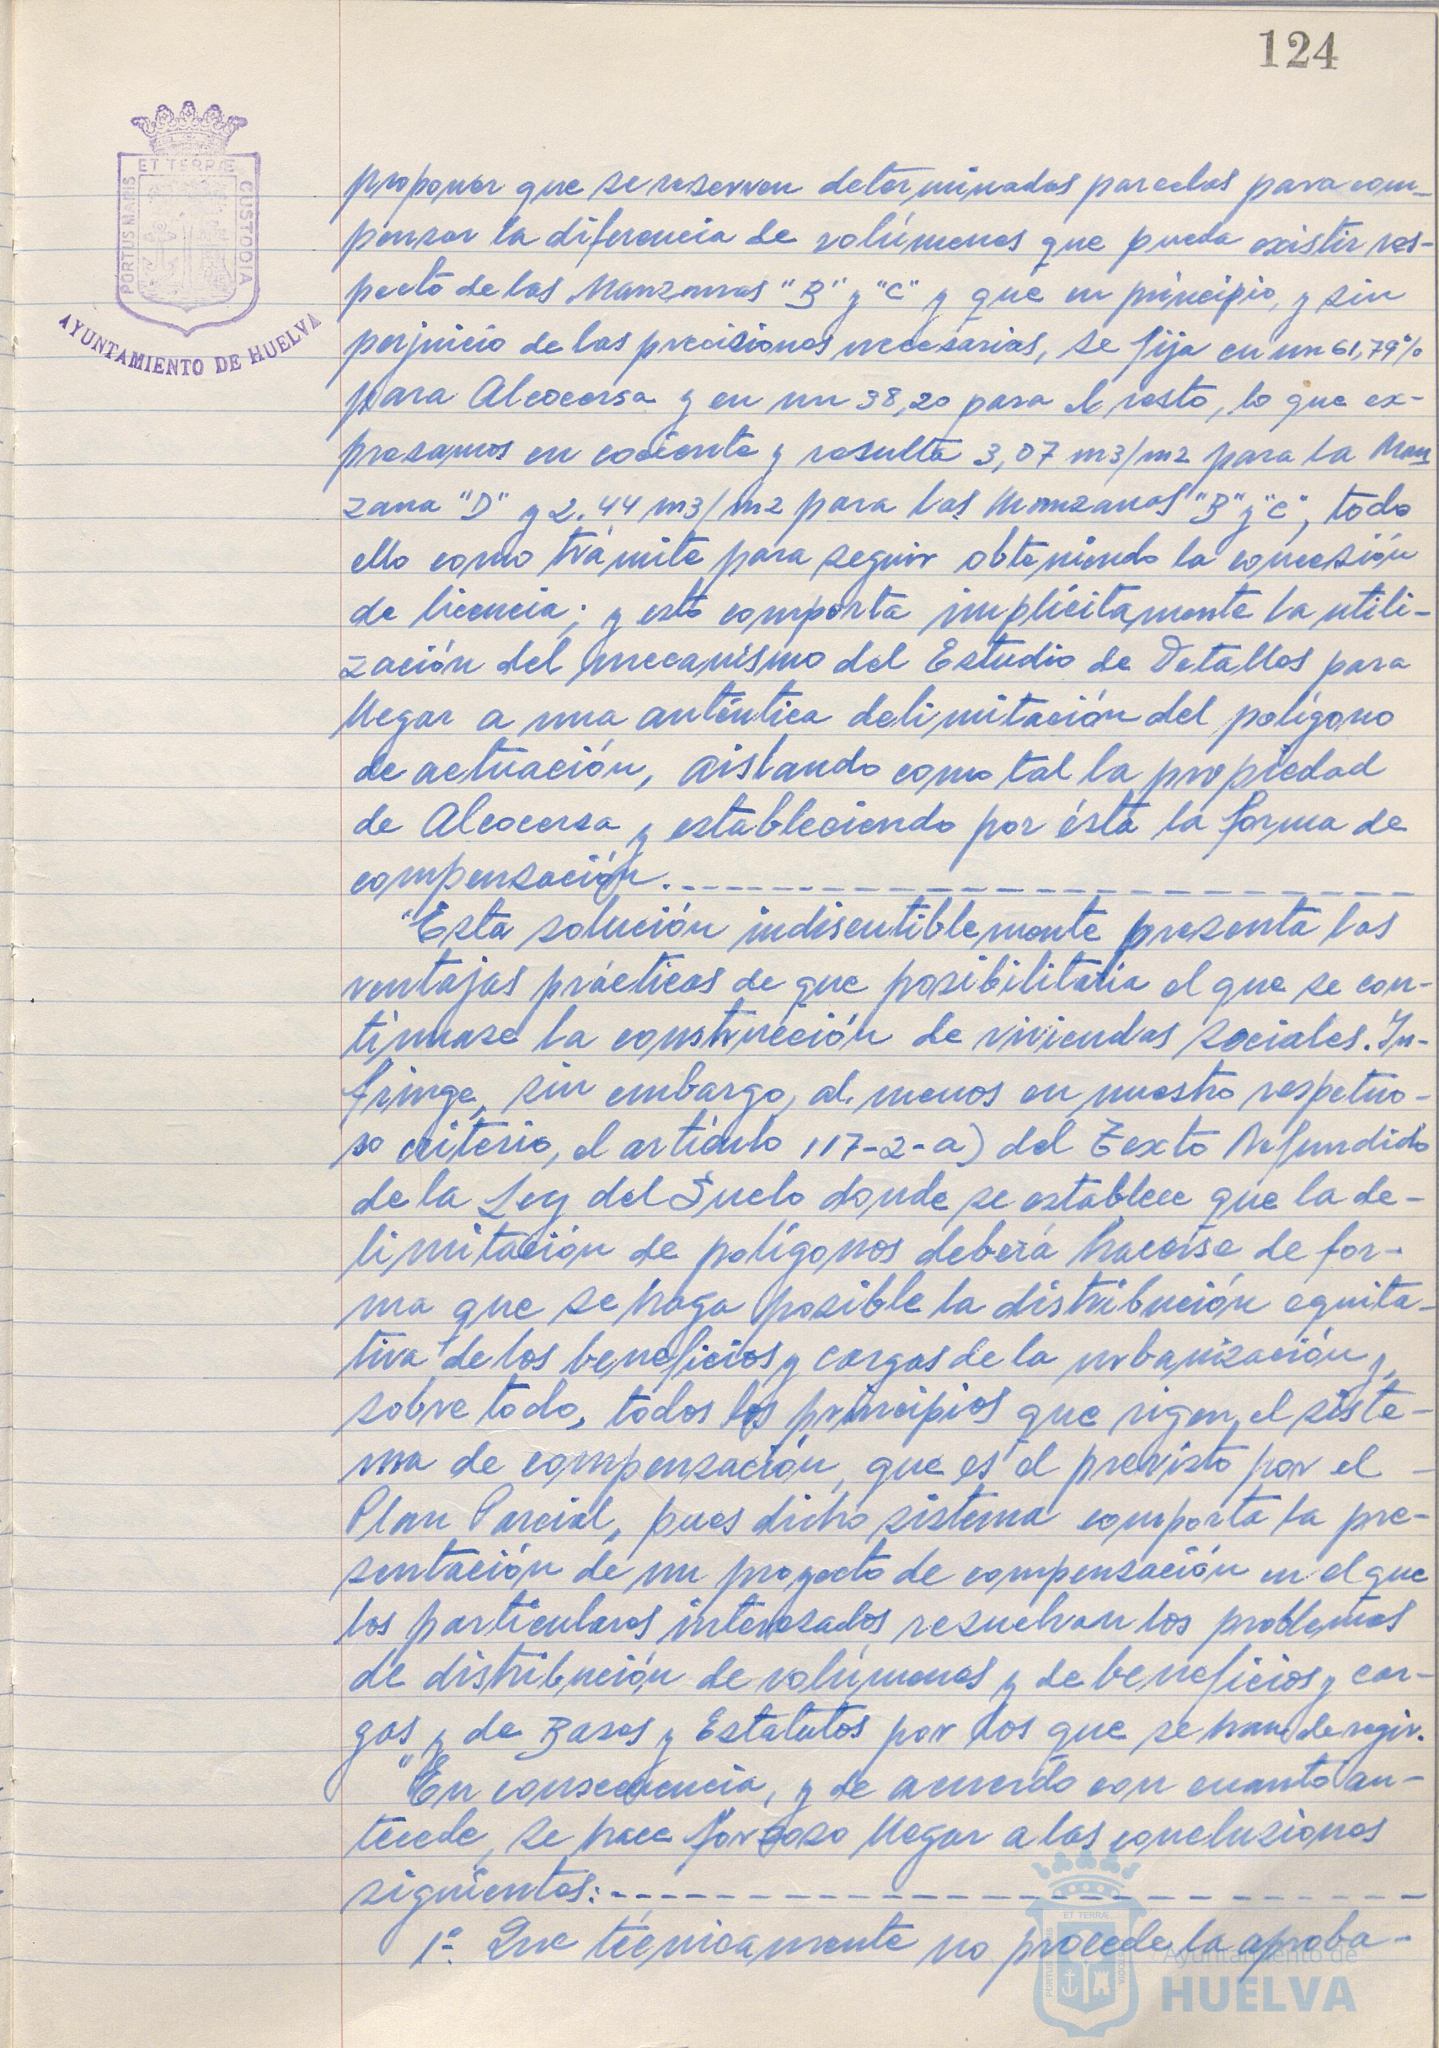 124
ET TERRÆ
PORTUS MARIS
CUSTODIA
AYUNTAMIENTO DE HUELVA
proponer que se reserven determinadas parcelas para com-
pensar la diferencia de volúmenes que pueda existir res-
pecto de las Manzanas "B" y "C" y que en principio, y sin
perjuicio de las precisiones necesarias, se fija en un 61,79%
para Alcocersa y en un 38,20 para el resto, lo que ex-
presamos en cociente y resulta 3,07 m3/m2 para la Man
zana "D" y 2,44 m3/m2 para las Manzanas "B" y "C", todo
ello como trámite para seguir obteniendo la concesión
de licencia; y esto comporta implícitamente la utili-
zación del mecanismo del Estudio de Detalles para
llegar a una auténtica delimitación del polígono
de actuación, aislando como tal la propiedad
de Alcocersa y estableciendo por ésta la forma de
compensación.
"Esta solución indiscutiblemente presenta las
ventajas prácticas de que posibilitaría el que se con-
tinuase la construcción de viviendas sociales. In-
fringe, sin embargo, al menos en nuestro respetuo-
so criterio, el artículo 117-2-a) del Texto Refundido
de la Ley del Suelo donde se establece que la de-
limitación de polígonos deberá hacerse de for-
ma que se haga posible la distribución equita-
tiva de los beneficios y cargas de la urbanización y,
sobre todo, todos los principios que rigen el siste-
ma de compensación, que es el previsto por el
Plan Parcial, pues dicho sistema comporta la pre-
sentación de un proyecto de compensación en el que
los particulares interesados resuelvan los problemas
de distribución de volúmenes y de beneficios y car-
gas y de Bases y Estatutos por los que se han de regir.
"En consecuencia, y de acuerdo con cuanto an-
tecede, se hace forzoso llegar a las conclusiones
siguientes:
1º. Que técnicamente no procede la aproba-
ET TERRÆ
PORTUS MARIS
CUSTODIA
Ayuntamiento de
HUELVA